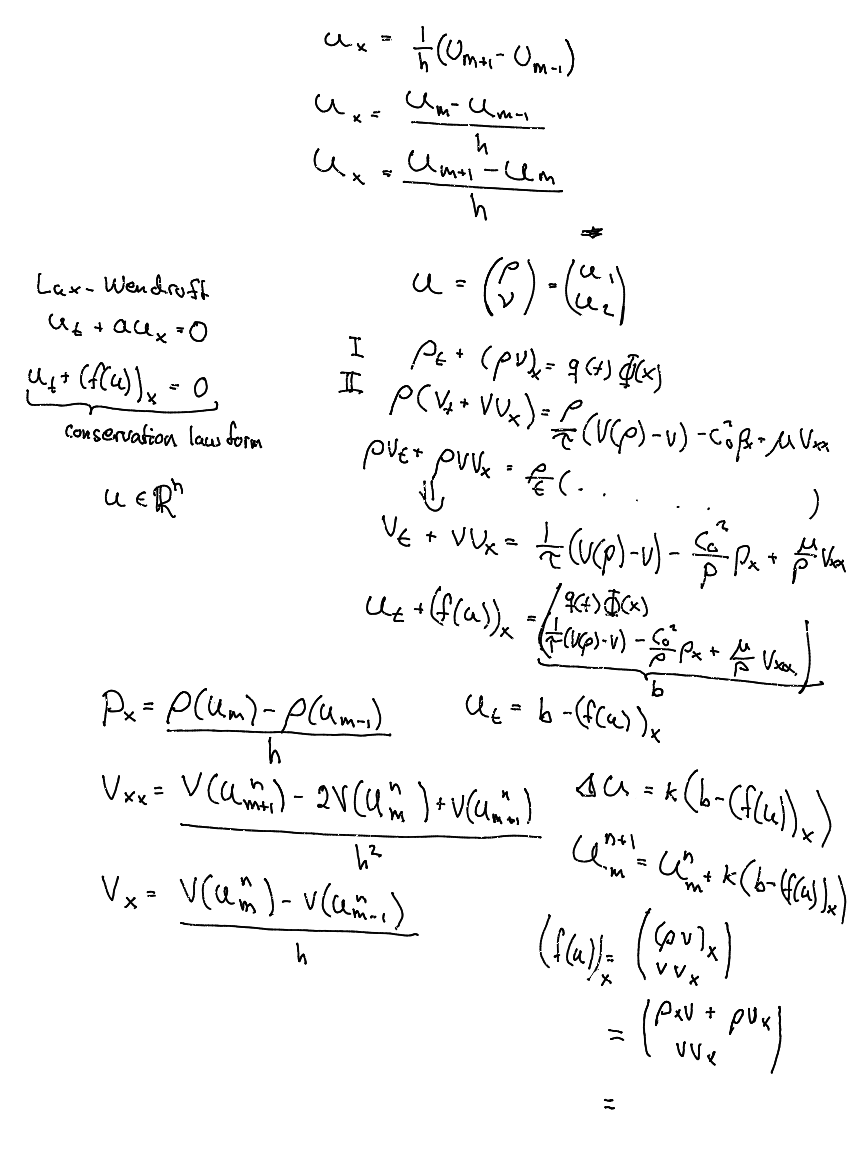 u_x = 1/h (U_{m+1} - U_{m-1})
u_x = (u_m - u_{m-1})/h
u_x = (u_{m+1} - u_m)/h
u = (ρ v) = (u_1 u_2)
Lax-Wendroff
u_t + au_x = 0
u_t + (f(u))_x = 0
conservation law form
u ∈ ℝ^n
I ρ_t + (ρv)_x = q(t) Φ(x)
II ρ(V_t + VV_x) = ρ/τ (V(ρ)-v) - c_0^2 ρ_x + μ V_xx
ρV_t + ρVV_x = ρ/t ( . . . . . )
⇓
V_t + VV_x = 1/τ (V(ρ)-v) - c_0^2/ρ ρ_x + μ/ρ V_xx
u_t + (f(u))_x = ( q(t) Φ(x)
1/τ (V(ρ)-v) - c_0^2/ρ ρ_x + μ/ρ V_xx )
b
ρ_x = (ρ(u_m) - ρ(u_{m-1}))/h
u_t = b - (f(u))_x
V_xx = (V(u_{m+1}^n) - 2V(u_m^n) + V(u_{m+1}^n))/h^2
Δu = k(b-(f(u))_x)
u_m^{n+1} = u_m^n + k(b-(f(u))_x)
V_x = (V(u_m^n) - V(u_{m-1}^n))/h
(f(u))_x = ( (ρv)_x
vv_x )
= ( ρ_x v + ρv_x
vv_x )
=